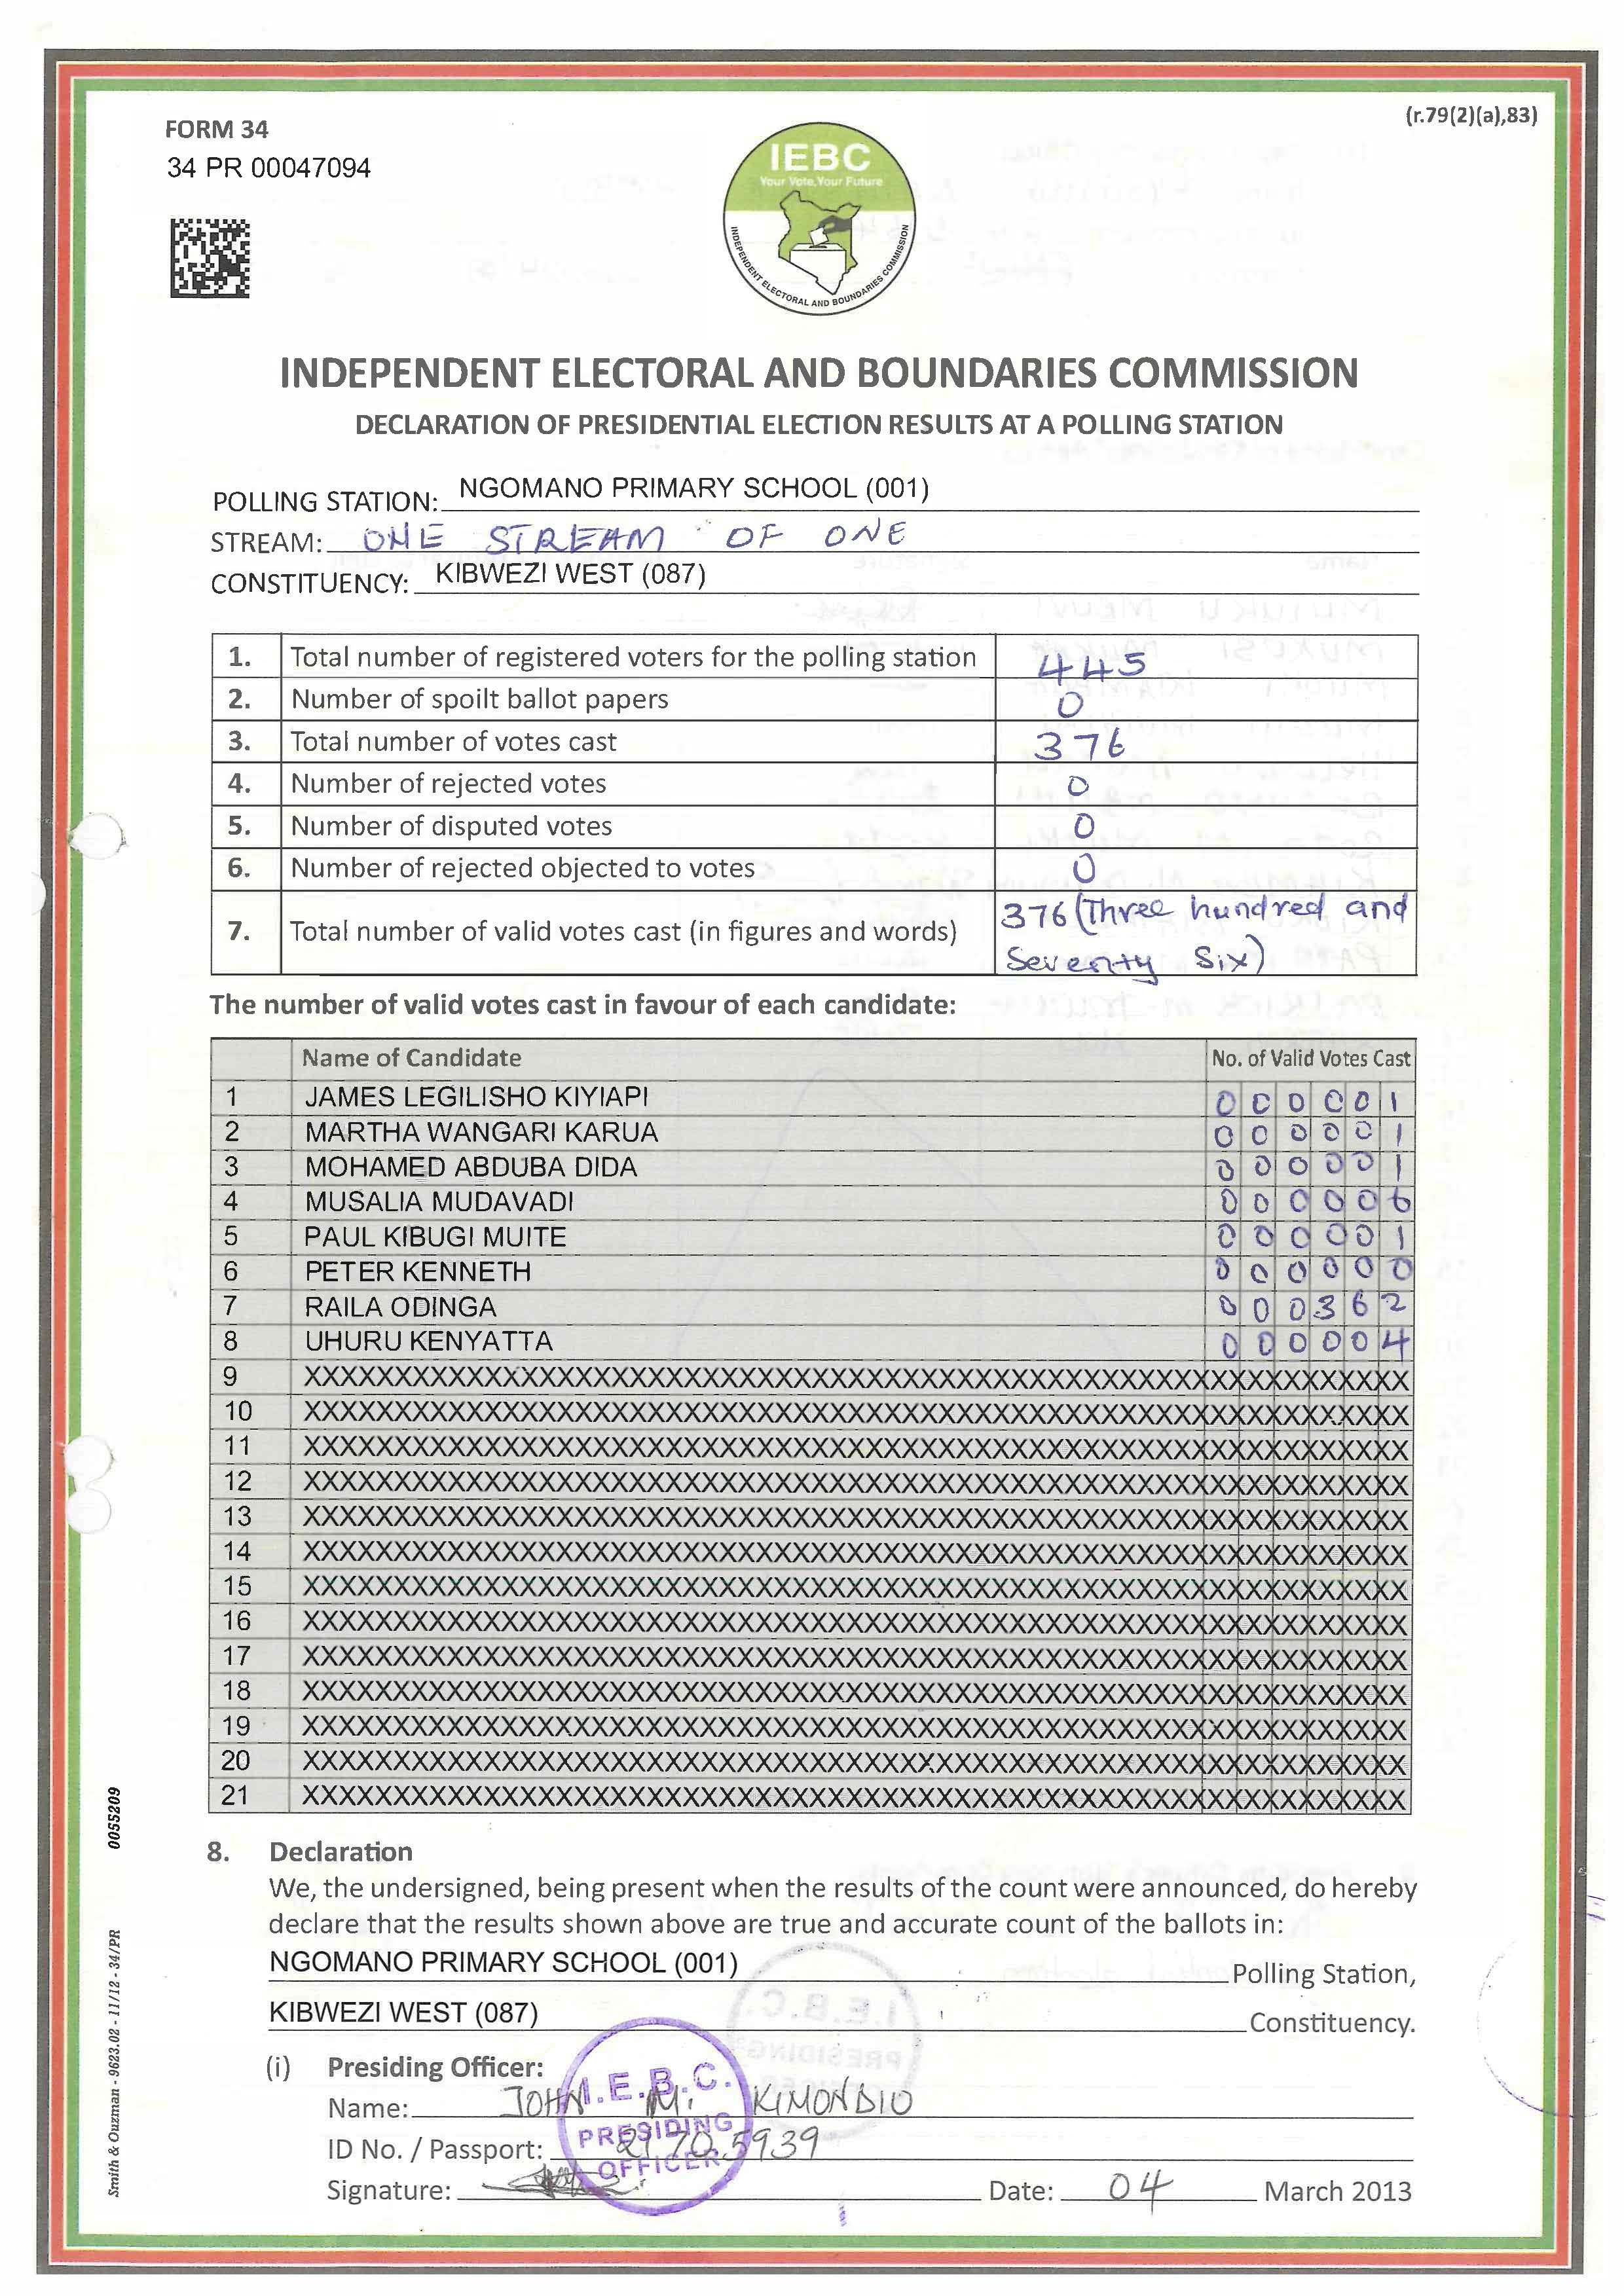 (r.79(2)(a),83)
FORM 34
34 PR 00047094
IEBC
Your Vote, Your Future
INDEPENDENT ELECTORAL AND BOUNDARIES COMMISSION
INDEPENDENT ELECTORAL AND BOUNDARIES COMMISSION
DECLARATION OF PRESIDENTIAL ELECTION RESULTS AT A POLLING STATION
POLLING STATION: NGOMANO PRIMARY SCHOOL (001)
STREAM: ONE STREAM OF ONE
CONSTITUENCY: KIBWEZI WEST (087)
1. Total number of registered voters for the polling station 445
2. Number of spoilt ballot papers 0
3. Total number of votes cast 376
4. Number of rejected votes 0
5. Number of disputed votes 0
6. Number of rejected objected to votes 0
7. Total number of valid votes cast (in figures and words) 376 (Three hundred and
Seventy Six)
The number of valid votes cast in favour of each candidate:
Name of Candidate No. of Valid Votes Cast
1 JAMES LEGILISHO KIYIAPI 0 0 0 0 0 1
2 MARTHA WANGARI KARUA 0 0 0 0 0 1
3 MOHAMED ABDUBA DIDA 0 0 0 0 0 1
4 MUSALIA MUDAVADI 0 0 0 0 0 6
5 PAUL KIBUGI MUITE 0 0 0 0 0 1
6 PETER KENNETH 0 0 0 0 0 0
7 RAILA ODINGA 0 0 0 3 6 2
8 UHURU KENYATTA 0 0 0 0 0 4
9 XXXXXXXXXXXXXXXXXXXXXXXXXXXXXXXXXXXXXXXXXXXXXXXXXXXXXXXXXXXXXXXXXXXXXXXX
10 XXXXXXXXXXXXXXXXXXXXXXXXXXXXXXXXXXXXXXXXXXXXXXXXXXXXXXXXXXXXXXXXXXXXXXXX
11 XXXXXXXXXXXXXXXXXXXXXXXXXXXXXXXXXXXXXXXXXXXXXXXXXXXXXXXXXXXXXXXXXXXXXXXX
12 XXXXXXXXXXXXXXXXXXXXXXXXXXXXXXXXXXXXXXXXXXXXXXXXXXXXXXXXXXXXXXXXXXXXXXXX
13 XXXXXXXXXXXXXXXXXXXXXXXXXXXXXXXXXXXXXXXXXXXXXXXXXXXXXXXXXXXXXXXXXXXXXXXX
14 XXXXXXXXXXXXXXXXXXXXXXXXXXXXXXXXXXXXXXXXXXXXXXXXXXXXXXXXXXXXXXXXXXXXXXXX
15 XXXXXXXXXXXXXXXXXXXXXXXXXXXXXXXXXXXXXXXXXXXXXXXXXXXXXXXXXXXXXXXXXXXXXXXX
16 XXXXXXXXXXXXXXXXXXXXXXXXXXXXXXXXXXXXXXXXXXXXXXXXXXXXXXXXXXXXXXXXXXXXXXXX
17 XXXXXXXXXXXXXXXXXXXXXXXXXXXXXXXXXXXXXXXXXXXXXXXXXXXXXXXXXXXXXXXXXXXXXXXX
18 XXXXXXXXXXXXXXXXXXXXXXXXXXXXXXXXXXXXXXXXXXXXXXXXXXXXXXXXXXXXXXXXXXXXXXXX
19 XXXXXXXXXXXXXXXXXXXXXXXXXXXXXXXXXXXXXXXXXXXXXXXXXXXXXXXXXXXXXXXXXXXXXXXX
20 XXXXXXXXXXXXXXXXXXXXXXXXXXXXXXXXXXXXXXXXXXXXXXXXXXXXXXXXXXXXXXXXXXXXXXXX
21 XXXXXXXXXXXXXXXXXXXXXXXXXXXXXXXXXXXXXXXXXXXXXXXXXXXXXXXXXXXXXXXXXXXXXXXX
8. Declaration
We, the undersigned, being present when the results of the count were announced, do hereby
declare that the results shown above are true and accurate count of the ballots in:
NGOMANO PRIMARY SCHOOL (001) Polling Station,
KIBWEZI WEST (087) Constituency.
(i) Presiding Officer:
Name: JOHN M. KIMONDIO
ID No. / Passport: 21705939
Signature: Date: 04 March 2013
I.E.B.C.
PRESIDING
OFFICER
Smith & Ouzman - 9623.02 - 11/12 - 34/PR 0055209